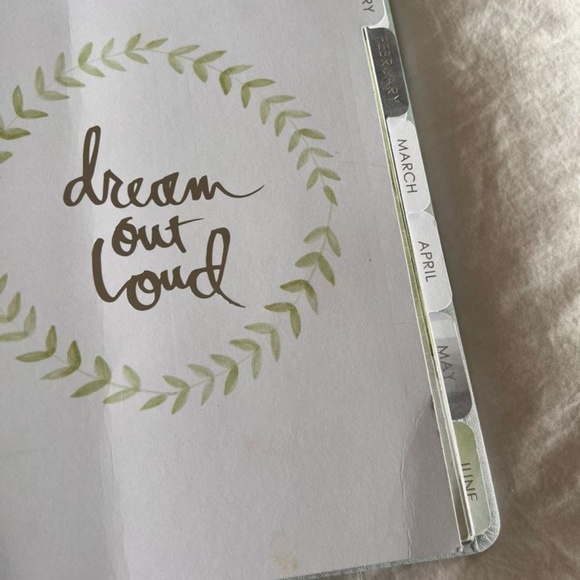 dream
out
loud
RY
FEBRUARY
MARCH
APRIL
MAY
JUNE